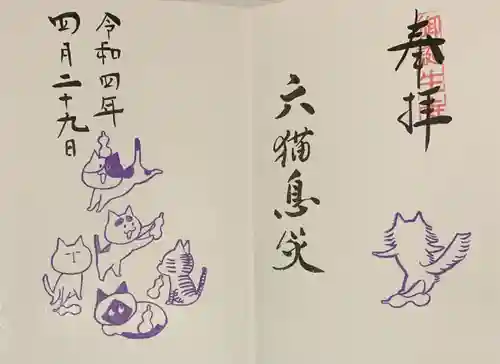 奉拝
六猫息災
令和四年
四月二十九日